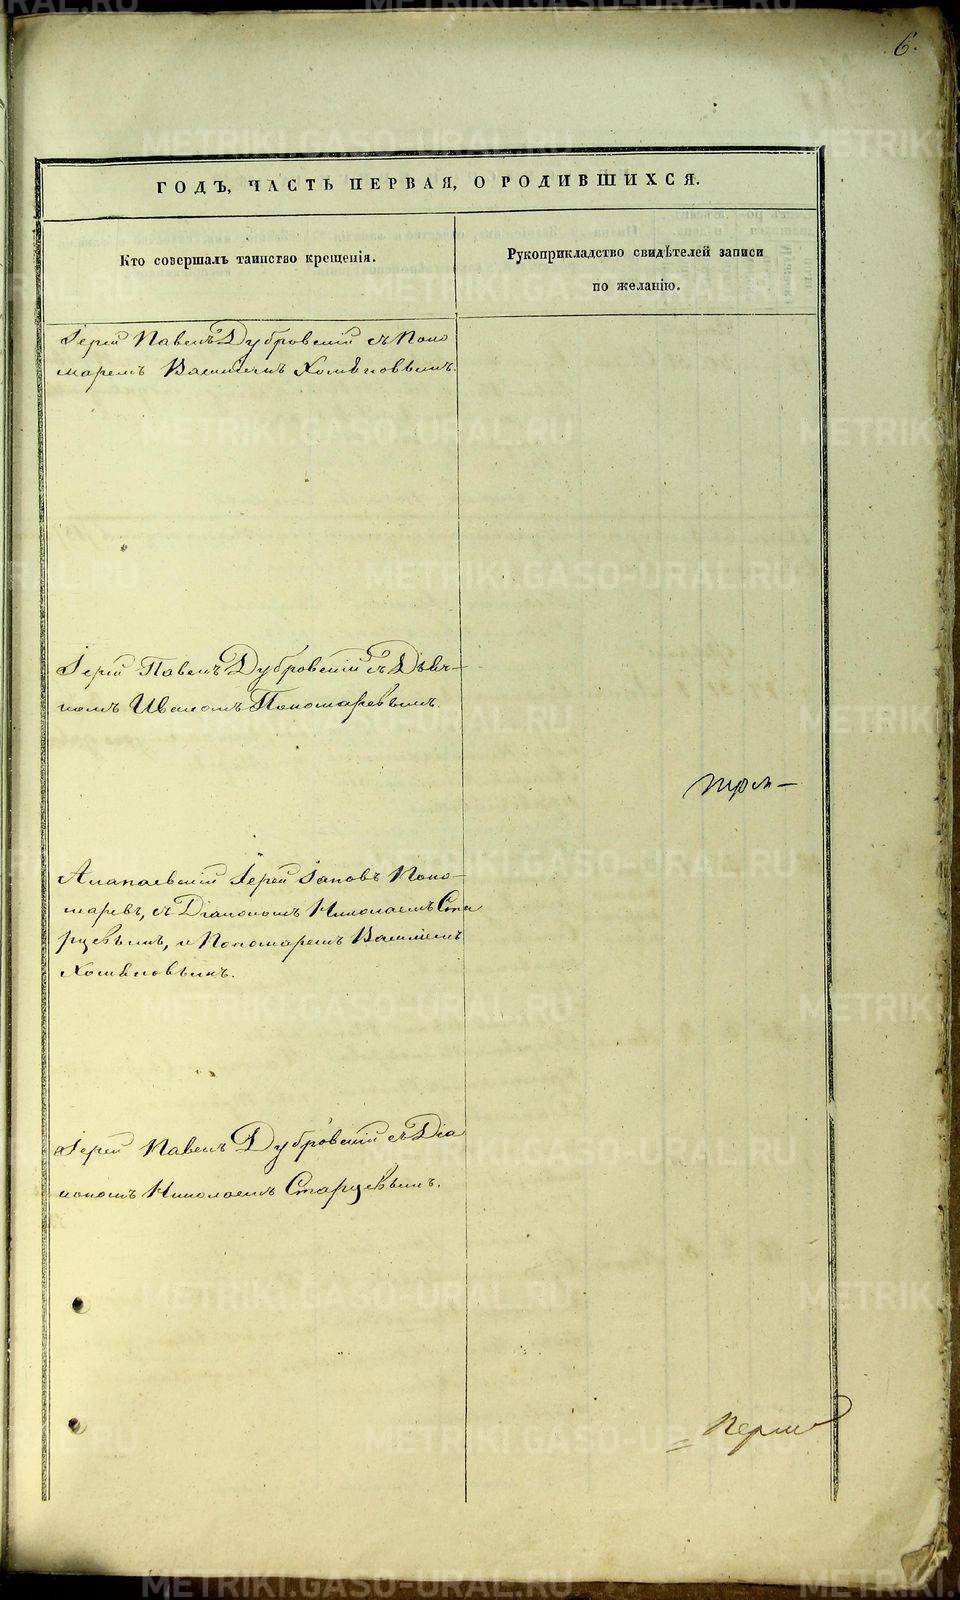 6.
ГОДЪ, ЧАСТЬ ПЕРВАЯ, О РОДИВШИХСЯ.
Кто совершалъ таинство крещенія.
Рукоприкладство свидѣтелей записи
по желанію.
Іерей Павелъ Дубровскій съ Поно
маремъ Василіемъ Хомяковымъ.
Іерей Павелъ Дубровскій съ Дьяч-
комъ Иваномъ Пономаревымъ.
Алапаевскій Іерей Іаковъ Поно-
маревъ, съ Діакономъ Николаемъ Ста
рцевымъ, и Пономаремъ Василіемъ
Хомяковымъ.
Іерей Павелъ Дубровскій съ Діа
кономъ Николаемъ Старцевымъ.
METRIKI.GASO-URAL.RU